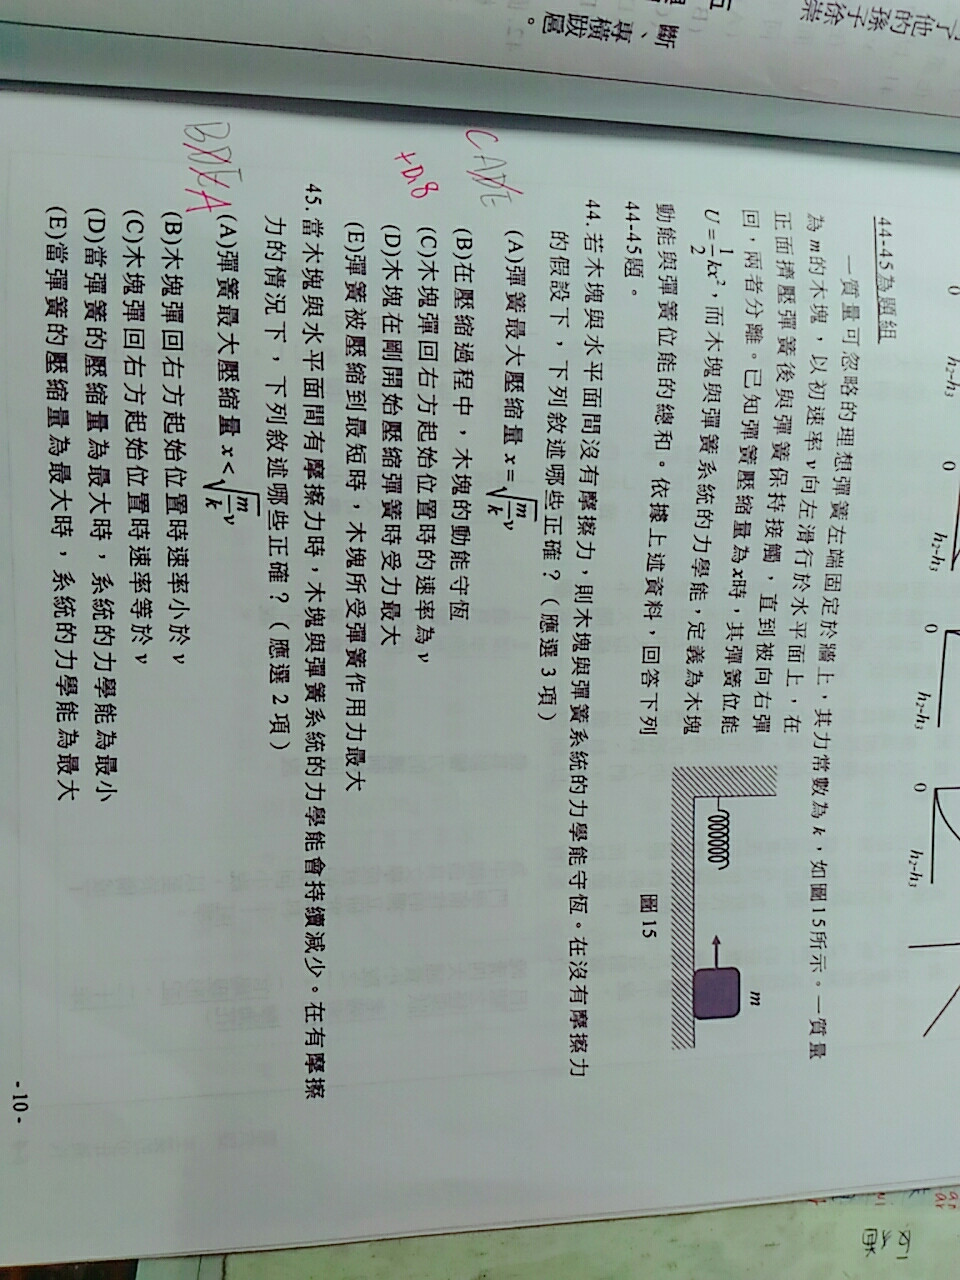 了他的孫子徐崇
斷
、專橫跋扈
。
0
h₂-h₃
0
h₂-h₃
0
h₂-h₃
0
h₂-h₃
44-45為題組
一質量可忽略的理想彈簧左端固定於牆上，其力常數為k，如圖15所示。一質量
為m的木塊，以初速率v向左滑行於水平面上，在
正面擠壓彈簧後與彈簧保持接觸，直到被向右彈
回，兩者分離。已知彈簧壓縮量為x時，其彈簧位能
U=1/2kx²，而木塊與彈簧系統的力學能，定義為木塊
動能與彈簧位能的總和。依據上述資料，回答下列
44-45題。
m
圖15
44.若木塊與水平面間沒有摩擦力，則木塊與彈簧系統的力學能守恆。在沒有摩擦力
的假設下，下列敘述哪些正確？（應選3項）
CADE
(A)彈簧最大壓縮量x=√(m/k)v
(B)在壓縮過程中，木塊的動能守恆
(C)木塊彈回右方起始位置時的速率為v
+0.8
(D)木塊在剛開始壓縮彈簧時受力最大
(E)彈簧被壓縮到最短時，木塊所受彈簧作用力最大
45.當木塊與水平面間有摩擦力時，木塊與彈簧系統的力學能會持續減少。在有摩擦
力的情況下，下列敘述哪些正確？（應選2項）
(A)彈簧最大壓縮量x<√(m/k)v
(B)木塊彈回右方起始位置時速率小於v
(C)木塊彈回右方起始位置時速率等於v
(D)當彈簧的壓縮量為最大時，系統的力學能為最小
(E)當彈簧的壓縮量為最大時，系統的力學能為最大
- 10 -